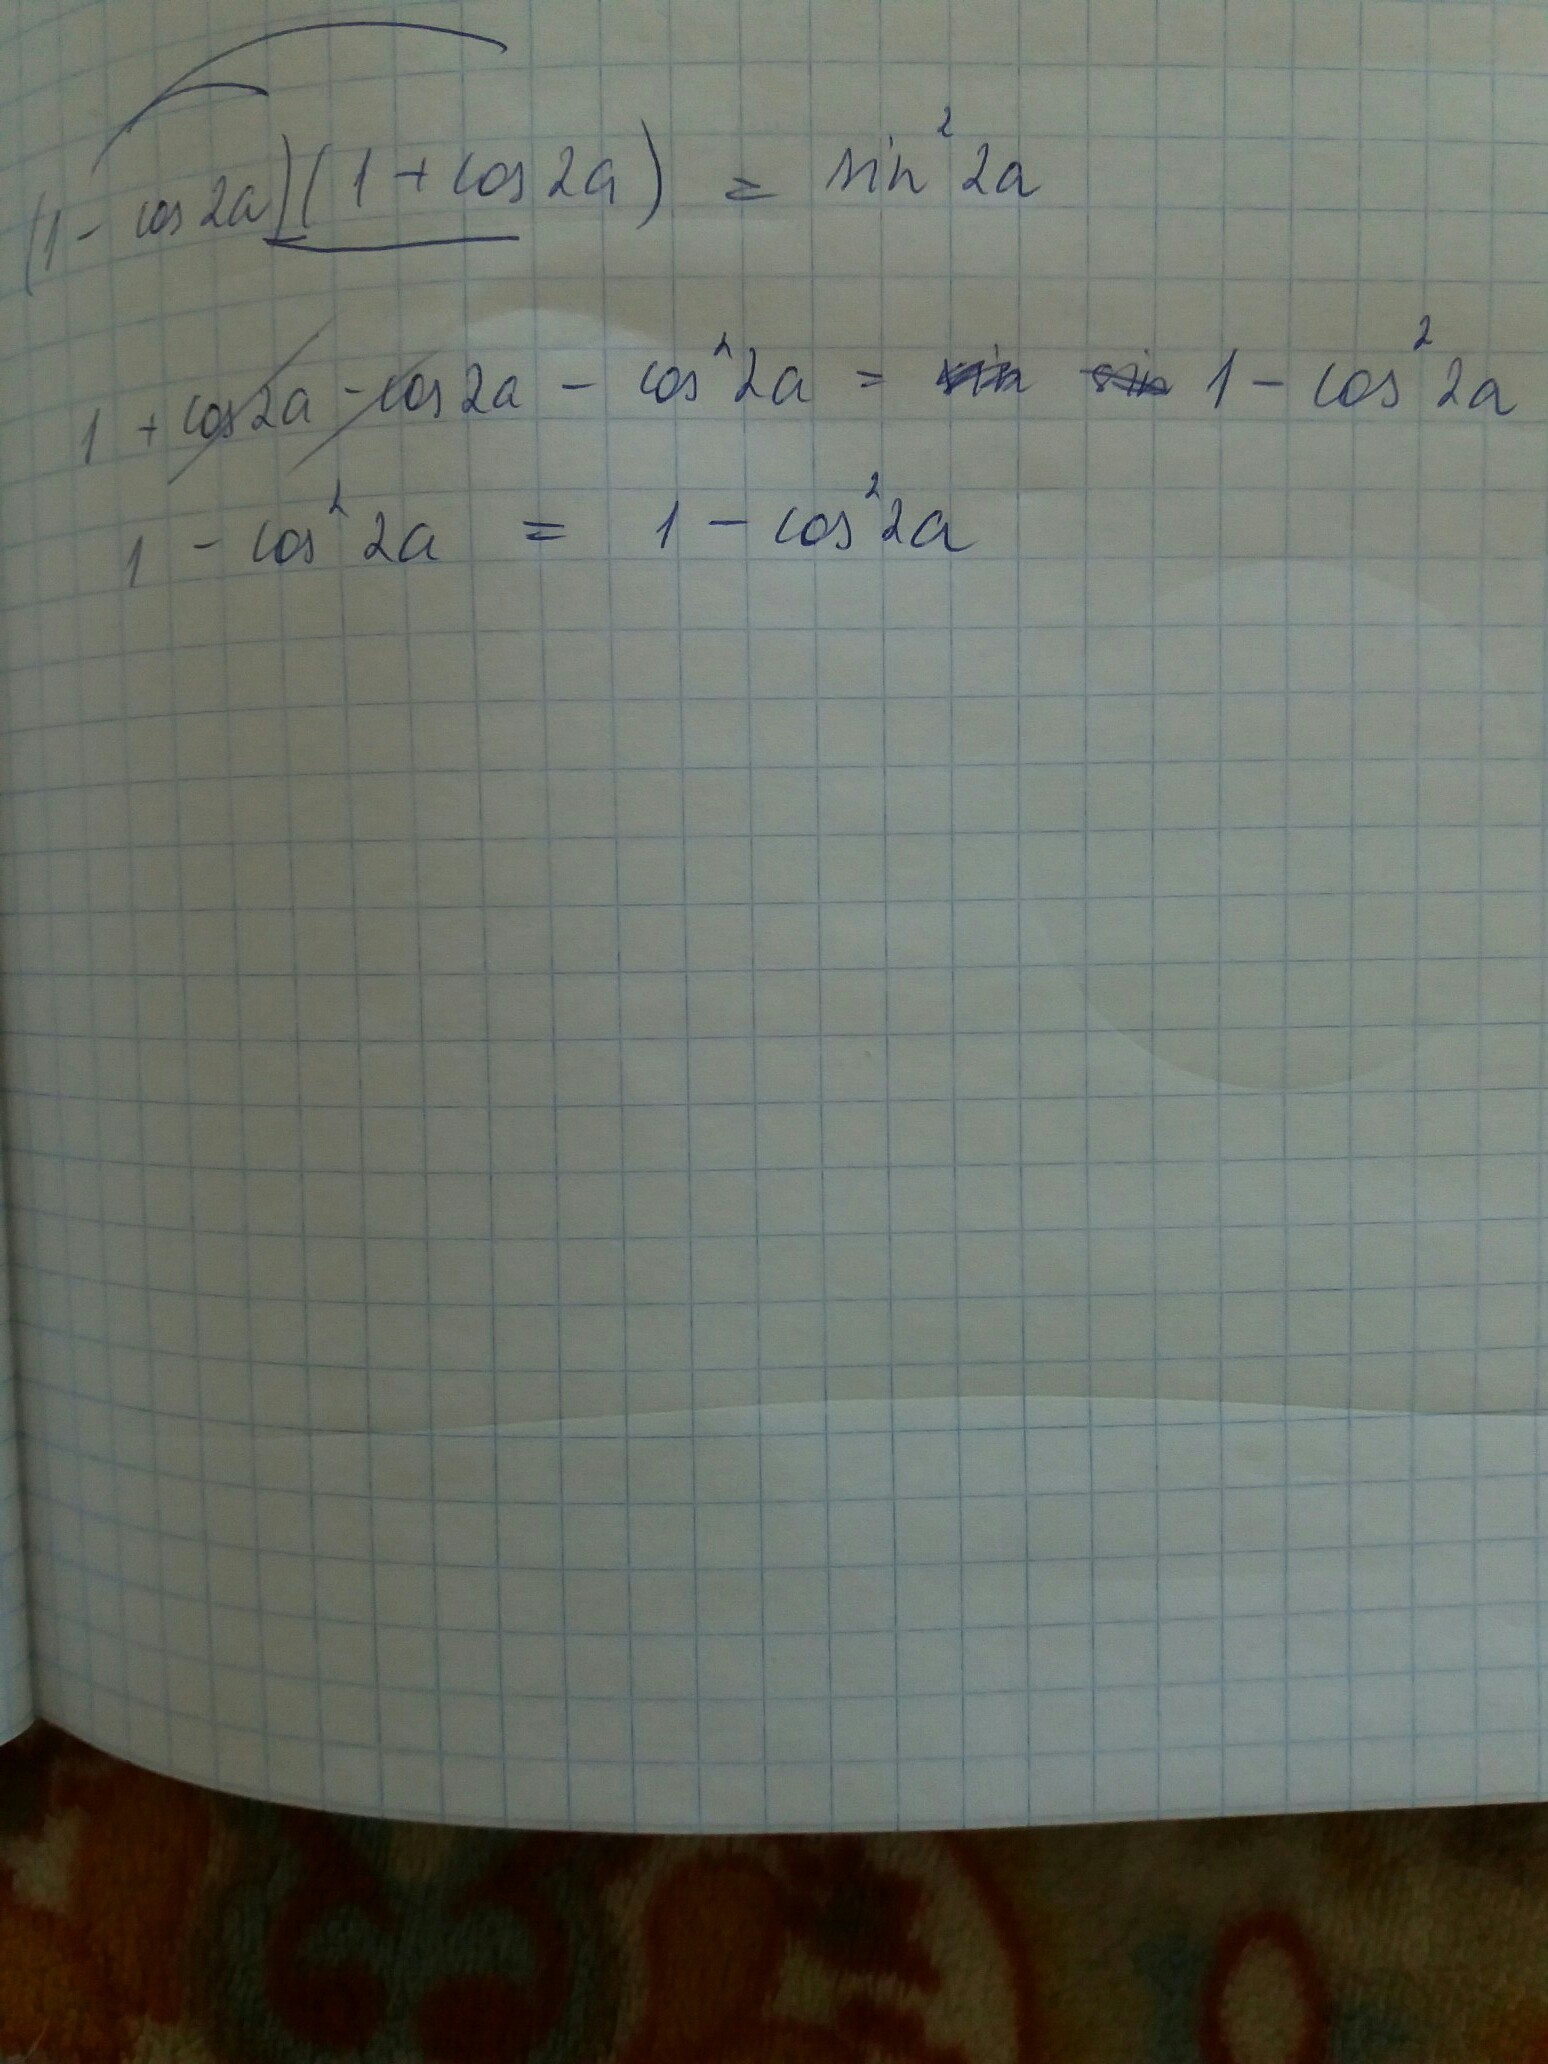 (1 - cos 2a)(1 + cos 2a) = sin² 2a
1 + cos 2a - cos 2a - cos² 2a = sin sin 1 - cos² 2a
1 - cos² 2a = 1 - cos² 2a